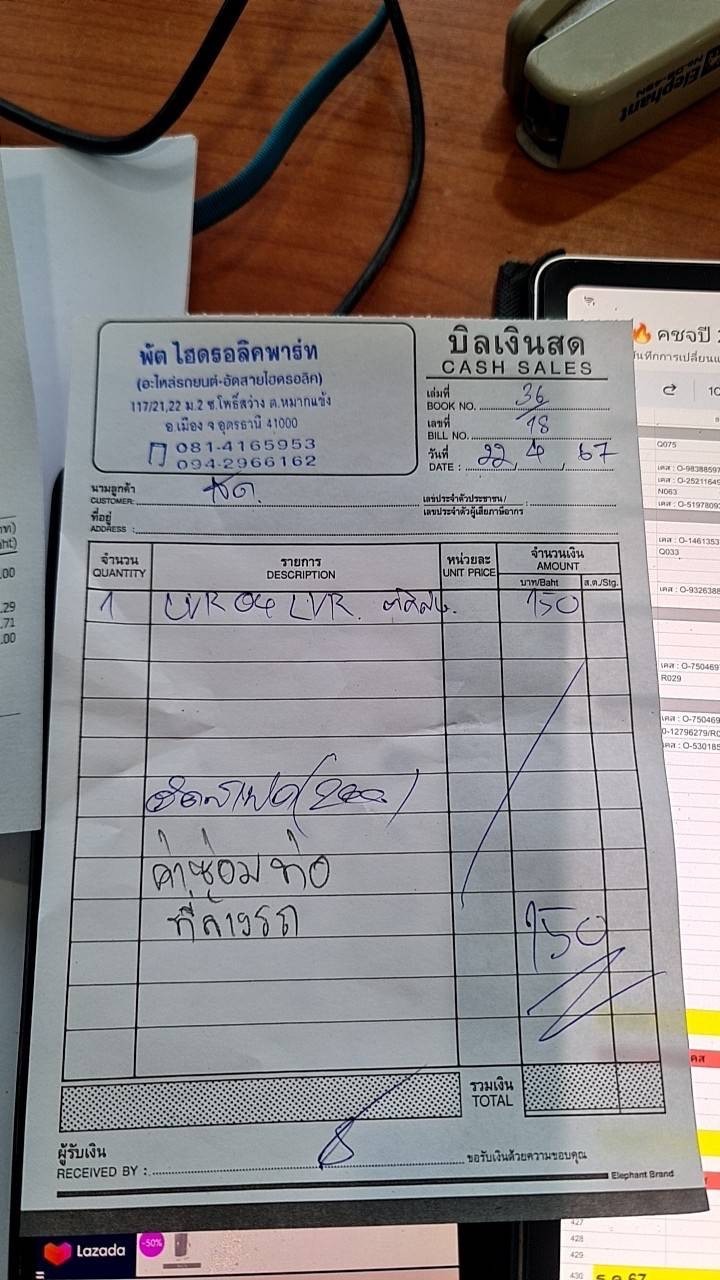 Elephant
พัต ไฮดรอลิคพาร์ท
(อะไหล่รถยนต์-อัดสายไฮดรอลิค)
117/21,22 ม.2 ซ.โพธิ์สว่าง ต.หมากแข้ง
อ.เมือง จ.อุดรธานี 41000
081-4165953
094-2966162
บิลเงินสด
CASH SALES
เล่มที่
BOOK NO. 36
เลขที่
BILL NO. 18
วันที่
DATE : 22, 4, 67
นามลูกค้า
CUSTOMER: สด.
เลขประจำตัวประชาชน/
เลขประจำตัวผู้เสียภาษีอากร
ที่อยู่
ADDRESS :
จำนวน รายการ หน่วยละ จำนวนเงิน
QUANTITY DESCRIPTION UNIT PRICE AMOUNT
บาท/Baht ส.ต./Stg.
1 150
ค่าซ่อมท่อ
ที่ล้างรถ
150
รวมเงิน
TOTAL
ผู้รับเงิน
RECEIVED BY :
ขอรับเงินด้วยความขอบคุณ
Elephant Brand
คชจปี
Q075
เคส : O-9838859
เคส : O-25211649
N063
เคส : O-5197809
เคส : O-1461353
Q033
เคส : O-9326388
เคส : O-750469
R029
เคส : O-750469
เคส : O-530185
คส
427
428
429
430
.00
.29
.71
.00
Lazada
-50%